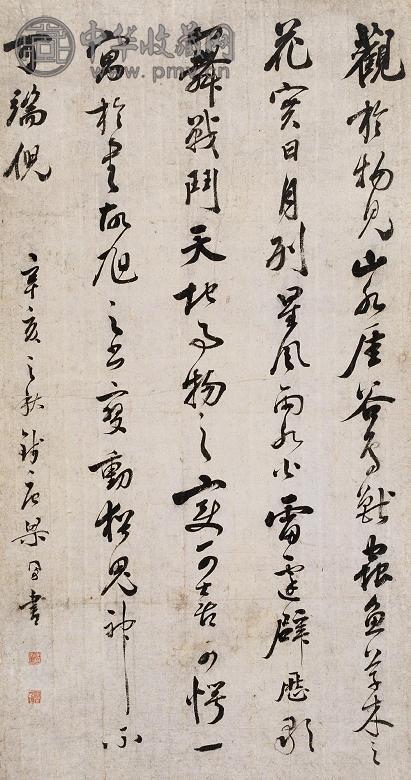 觀於物見山水厓谷鳥獸蟲魚草木之
花實日月列星風雨水火雷霆霹靂歌
舞戰鬥天地事物之變可喜可愕一
寓於書故旭之書變動猶鬼神不
可端倪
辛亥之秋錢唐梁同書
中华收藏网